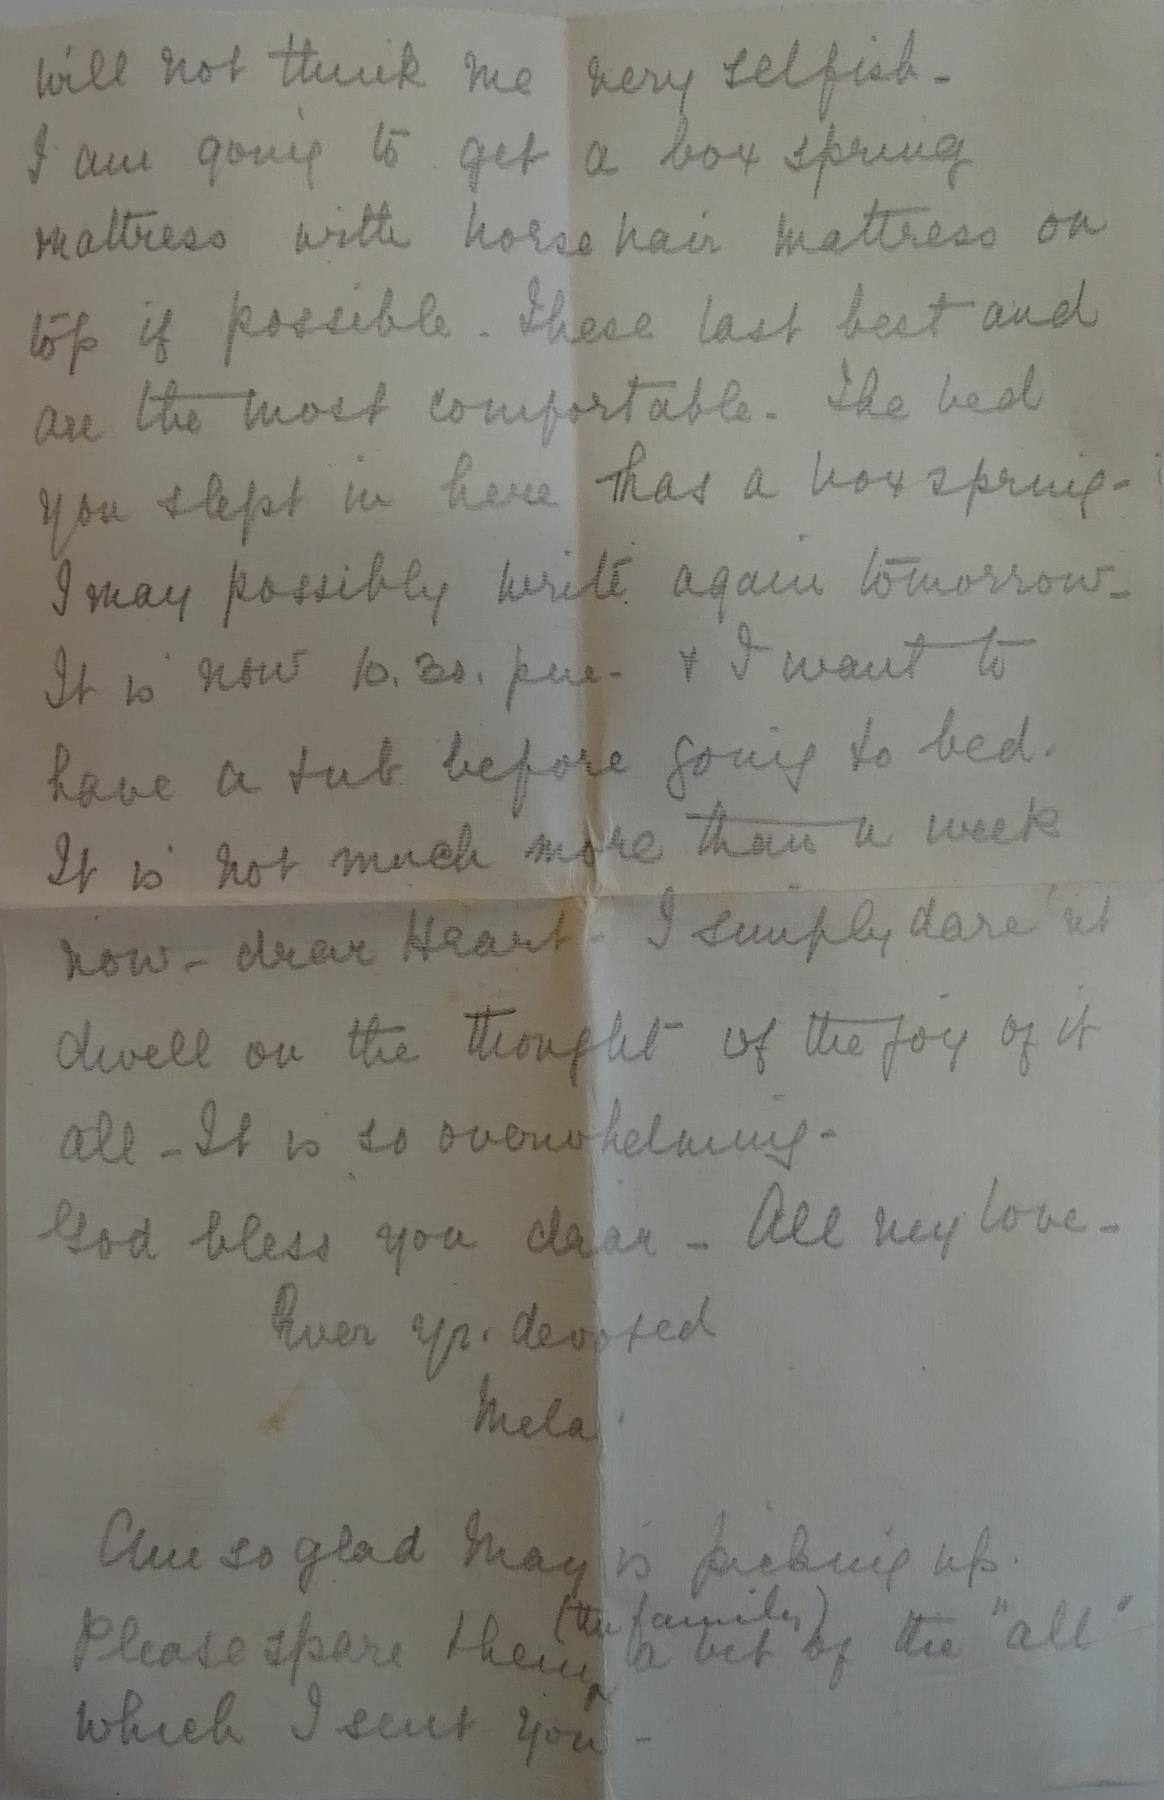 will not think me very selfish -
I am going to get a box spring
mattress with horse hair mattress on
top if possible. These last best and
are the most comfortable - The bed
you slept in here has a box spring -
I may possibly write again tomorrow -
It is now 10.30. pm - & I want to
have a tub before going to bed.
It is not much more than a week
now - dear Heart - I simply dare'nt
dwell on the thought of the joy of it
all - It is so overwhelming -
God bless you dear - All my love -
Ever yr. devoted
Mela.
Am so glad May is picking up.
(the family)
Please spare them a bit of the "all"
which I sent you -